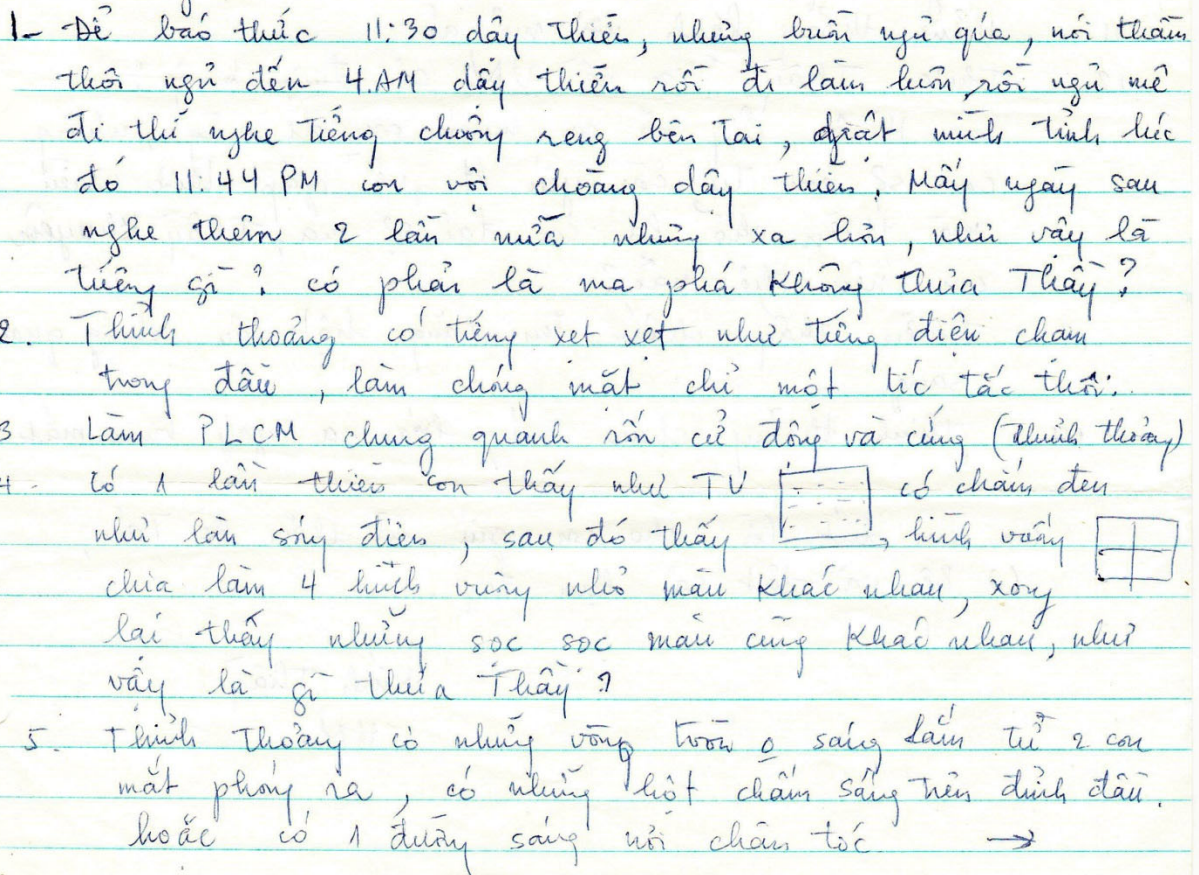 1- Để báo thức 11:30 dậy thiền, nhưng buồn ngủ qúa, nói thầm
thôi ngủ đến 4.AM dậy thiền rồi đi làm luôn, rồi ngủ mê
đi thì nghe tiếng chuông reng bên tai, giật mình tỉnh lúc
đó 11:44 PM con vội choàng dậy thiền. Mấy ngày sau
nghe thêm 2 lần nữa nhưng xa hơn, như vậy là
tiếng gì? có phải là ma phá Không thưa Thầy?
2. Thỉnh thoảng có tiếng xẹt xẹt như tiếng điện chạm
trong đầu, làm chóng mặt chỉ một tíc tắc thôi.
3 Làm PLCM chung quanh rốn cử động và cứng (thỉnh thoảng)
4- Có 1 lần thiền con thấy như TV có chấm đen
như làn sóng điện, sau đó thấy, hình vuông
chia làm 4 hình vuông nhỏ màu Khác nhau, xong
lại thấy những sọc sọc màu cũng Khác nhau, như
vậy là gì thưa Thầy?
5. Thỉnh Thoảng có những vòng tròn o sáng lắm từ 2 con
mắt phóng ra, có những hột chấm sáng trên đỉnh đầu.
hoặc có 1 đường sáng nơi chân tóc →